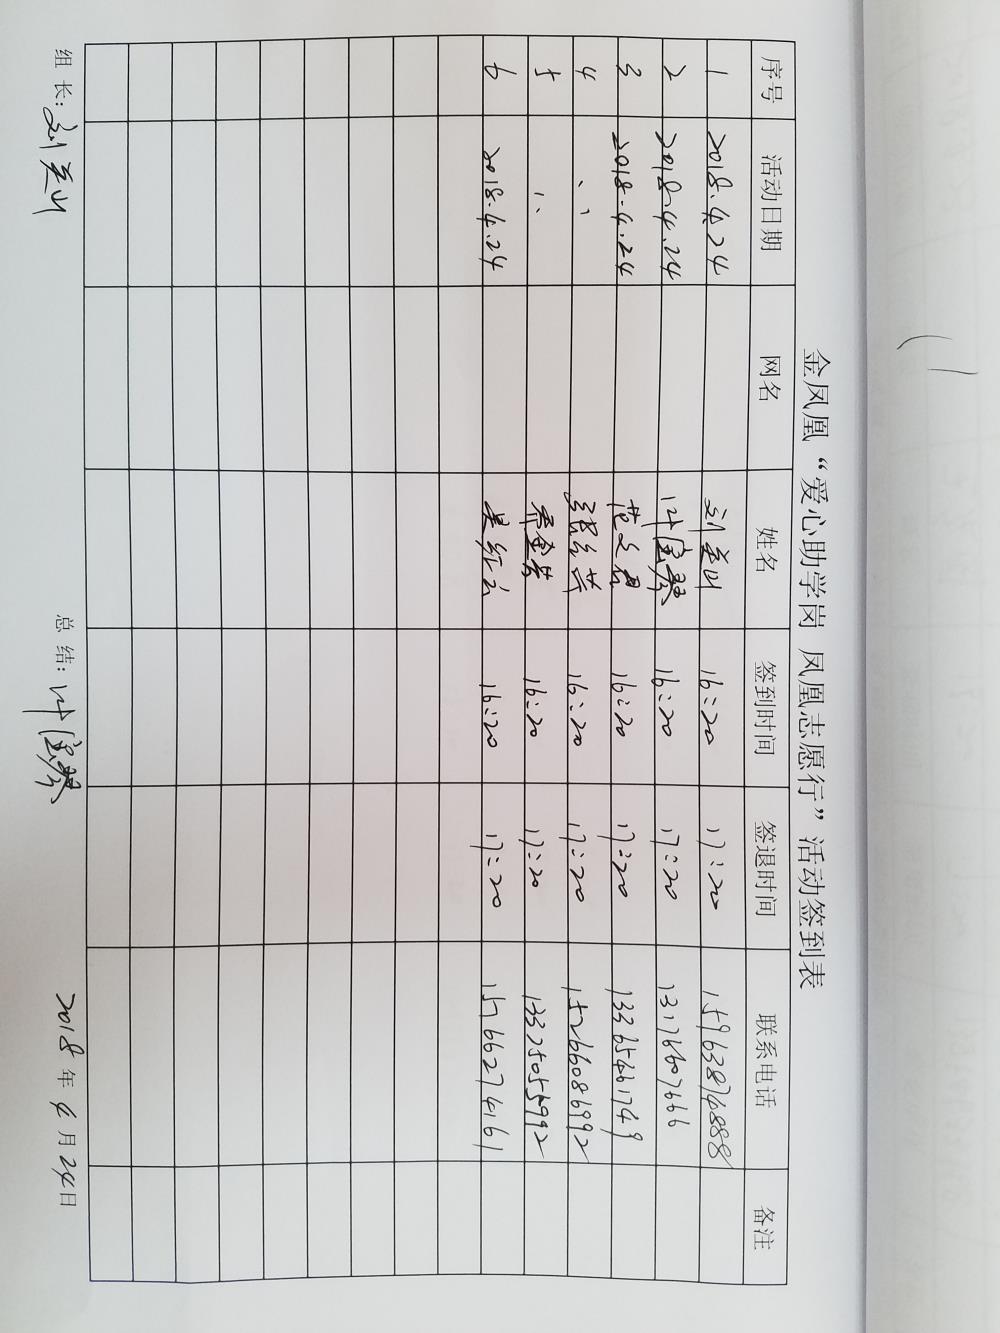 金凤凰“爱心助学岗 凤凰志愿行”活动签到表
序号 活动日期 网名 姓名 签到时间 签退时间 联系电话 备注
1 2018.4.24 16:20 17:20 15963874888
2 2018.4.24 16:20 17:20 13176607666
3 2018.4.24 范文君 16:20 17:20 13365461749
4 、、 16:20 17:20 15266086992
5 、、 16:20 17:20 13375055992
6 2018.4.24 吴红云 16:20 17:20 15766274161
组长: 总结: 2018年4月24日